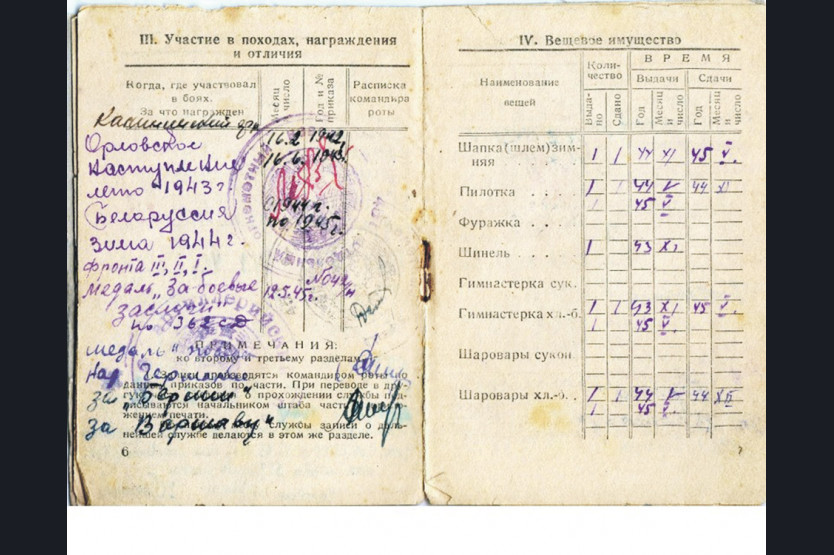 III. Участие в походах, награждения
и отличия
Когда, где участвовал
в боях.
За что награжден
Месяц
число
Год и №
приказа
Расписка
командира
роты
Калининский фр.
16.2 1942,
Орловское
16.6. 1943г.
наступление
лето 1943г
Белоруссия
с 1944г.
по 1945г.
зима 1944г.
фронта III, II, I.
медаль „За боевые
12.5.45г.
заслуги"
по 362 с.д
ПРИМЕЧАНИЯ:
ко второму и третьему разделам
медаль
Над Германие
Записи производятся командиром роты
приказов по части. При переводе в
о прохождении службы
начальником штаба части
печати.
за „Берлин"
за Варшаву"
службы записи о
нейшей службе делаются в этом же разделе.
6
IV. Вещевое имущество
Наименование
вещей
Коли-
чество
ВРЕМЯ
Выдачи
Сдачи
Выда-
но
Сдано
Год
Месяц
и
число
Год
Месяц
и
число
Шапка(шлем)зим-
няя 1 1 44 XI 45 V.
Пилотка . . . . 1 1 44 V 44 XI
1 45 V
Фуражка . . . .
Шинель . . . . 1 43 XI
Гимнастерка сук.
Гимнастерка хл.-б. 1 1 43 XI 45 V.
1 45 V.
Шаровары сукон.
Шаровары хл.-б. . 1 1 44 V 44 XII
1 45 V.
7